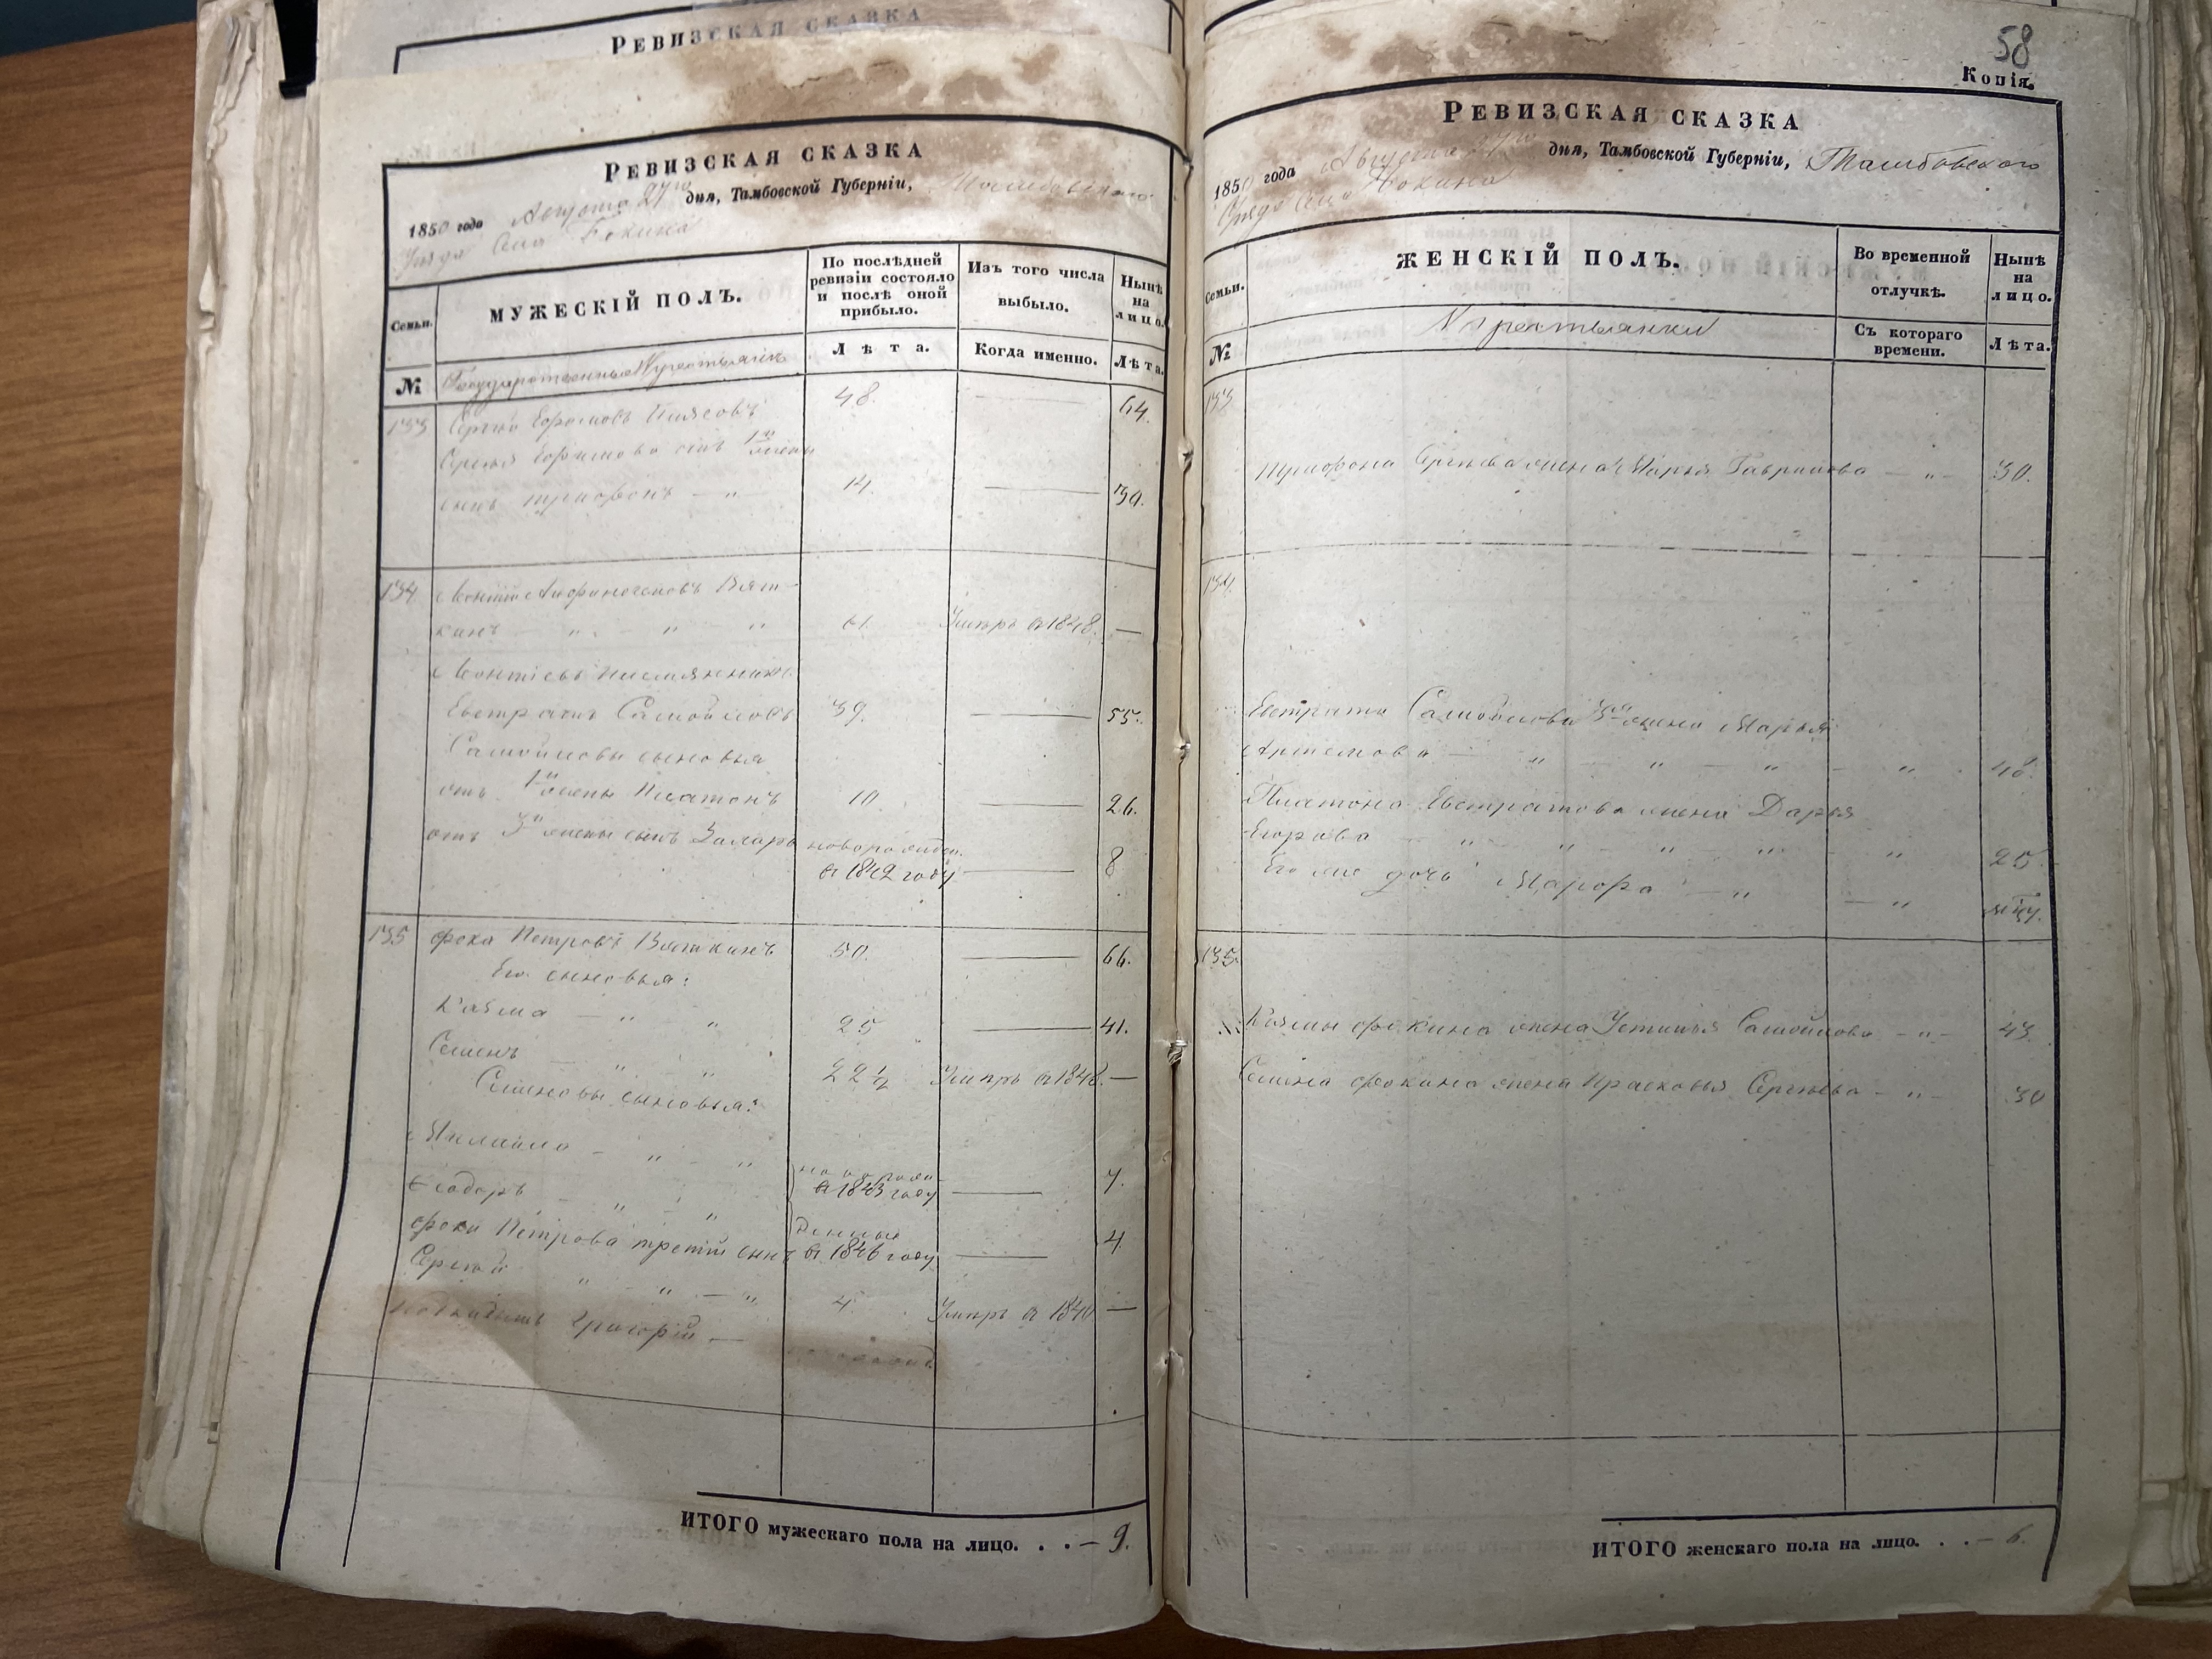 Ревизская сказка
Ревизская сказка
1850 года Августа 27го дня, Тамбовской Губерніи, Тамбовского
Уезда Села Бокина
Семьи.
МУЖЕСКІЙ ПОЛЪ.
По послѣдней ревизіи состояло и послѣ оной прибыло.
Изъ того числа выбыло.
Нынѣ на лицо.
№
Государственные Крестьяне
Лѣта.
Когда именно.
Лѣта.
133 Сергей Ефремовъ 48. — 64.
Сергея Ефремова отъ 1й жены
сынъ Трифонъ — " — 14. — 30.
134 Леонтій Анфиногеновъ Вят-
кинъ — " " " 61. Умеръ въ 1848. —
Леонтіевъ племянникъ
Евстратъ Самойловъ 39. — 55.
Самойловы сыновья
отъ 1й жены Платонъ 10. — 26.
отъ 3й жены сынъ Захаръ новорожден.
въ 1842 году — 8
135 Фока Петровъ Вяткинъ 50. — 66.
Его сыновья:
Козма — " " 25 — 41.
Семенъ — " " 22½ Умеръ въ 1848. —
Семеновы сыновья:
Михайло — " — " новорож-
въ 1843 году — 7.
Ѳеодоръ — " "
Фоки Петрова третій сынъ денные
въ 1846 году — 4.
Сергей " — " — " 4. Умеръ въ 1840 —
Подкидышъ Григорій —
ИТОГО мужескаго пола на лицо. . . — 9.
58
Копія.
Ревизская сказка
1850 года Августа 27го дня, Тамбовской Губерніи, Тамбовского
Уезда Села Бокина
Семьи.
ЖЕНСКІЙ ПОЛЪ.
Во временной отлучкѣ.
Нынѣ на лицо.
№
Крестьянки
Съ котораго времени.
Лѣта.
133
Трифона Сергеева жена Марья Гаврилова — " — 30.
134.
Евстрата Самойлова 3я жена Марья
Артемова — " — " — " — " 48.
Платона Евстратова жена Дарья
Егорова — " — " — " — " — " 25.
Его же дочь — " — "
135.
Козмы Фокина жена Устинья Самойлова — " — 43.
Семена Фокина жена Прасковья Сергеева — " — 30
ИТОГО женскаго пола на лицо. . . — 6.